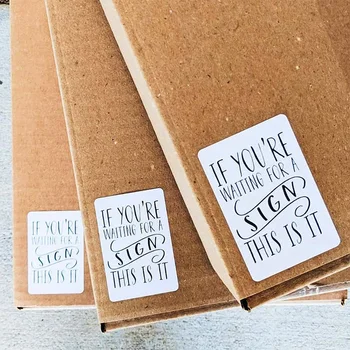 IF YOU'RE
WAITING FOR A
SIGN
THIS IS IT
IF YOU'RE
WAITING FOR A
SIGN
THIS IS IT
IF YOU'RE
WAITING FOR A
SIGN
THIS IS IT